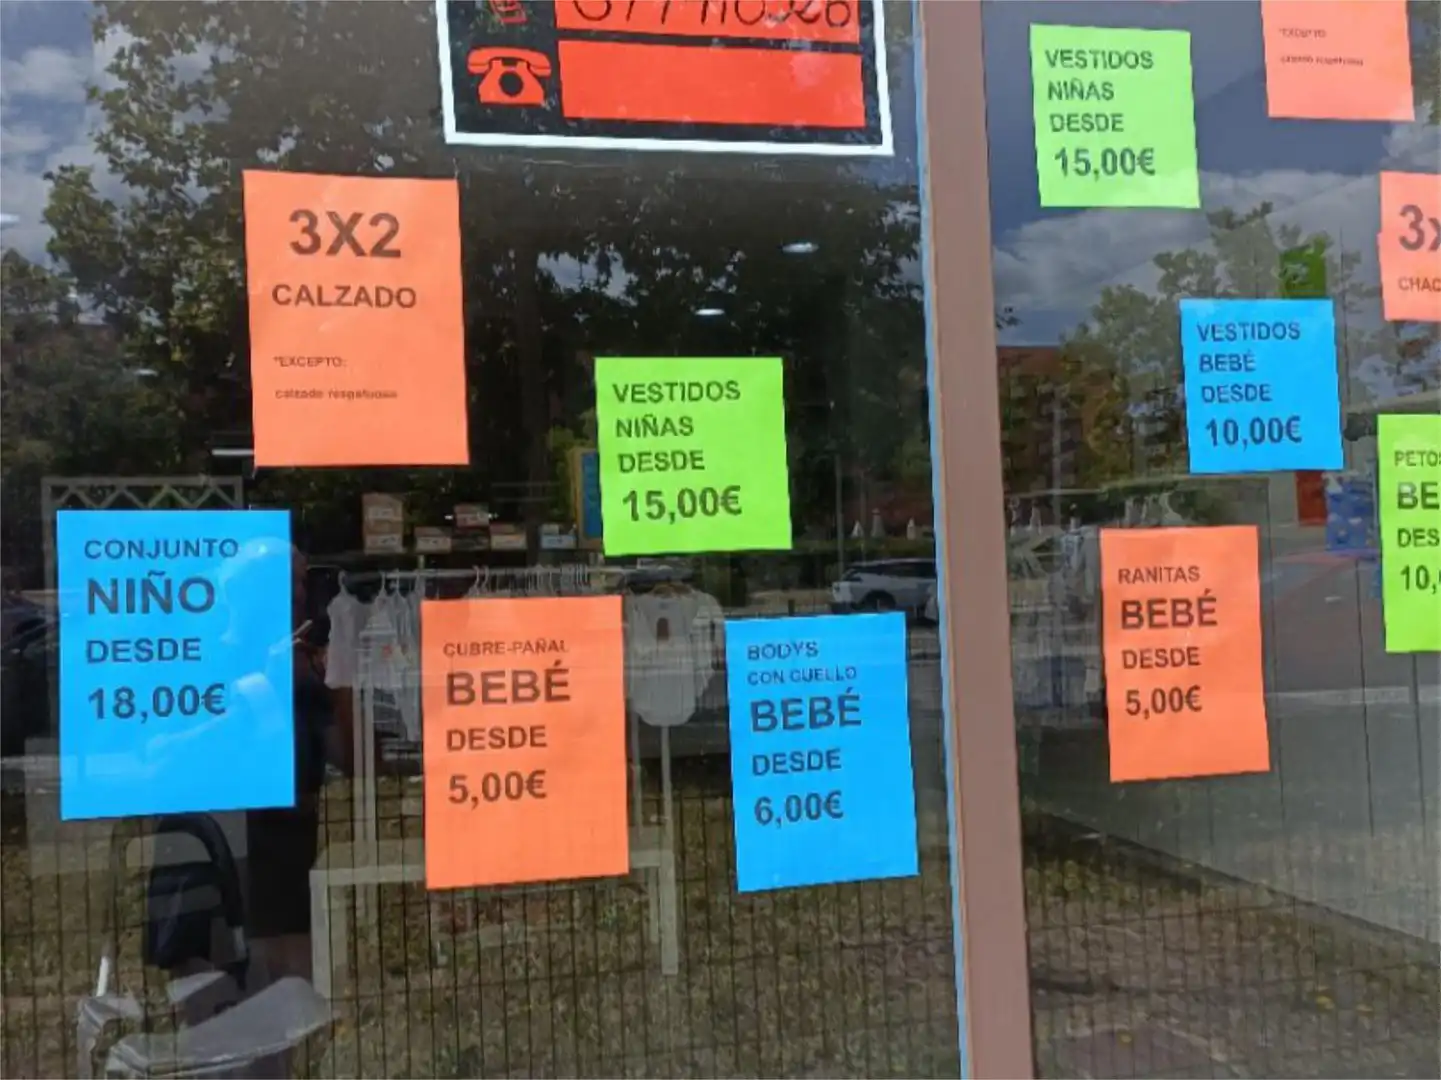 3X2
CALZADO
*EXCEPTO:
calzado respetuoso
CONJUNTO
NIÑO
DESDE
18,00€
VESTIDOS
NIÑAS
DESDE
15,00€
CUBRE-PAÑAL
BEBÉ
DESDE
5,00€
BODYS
CON CUELLO
BEBÉ
DESDE
6,00€
VESTIDOS
NIÑAS
DESDE
15,00€
*EXCEPTO
calzado respetuoso
3X
CHAC
VESTIDOS
BEBÉ
DESDE
10,00€
RANITAS
BEBÉ
DESDE
5,00€
PETOS
BE
DES
10,